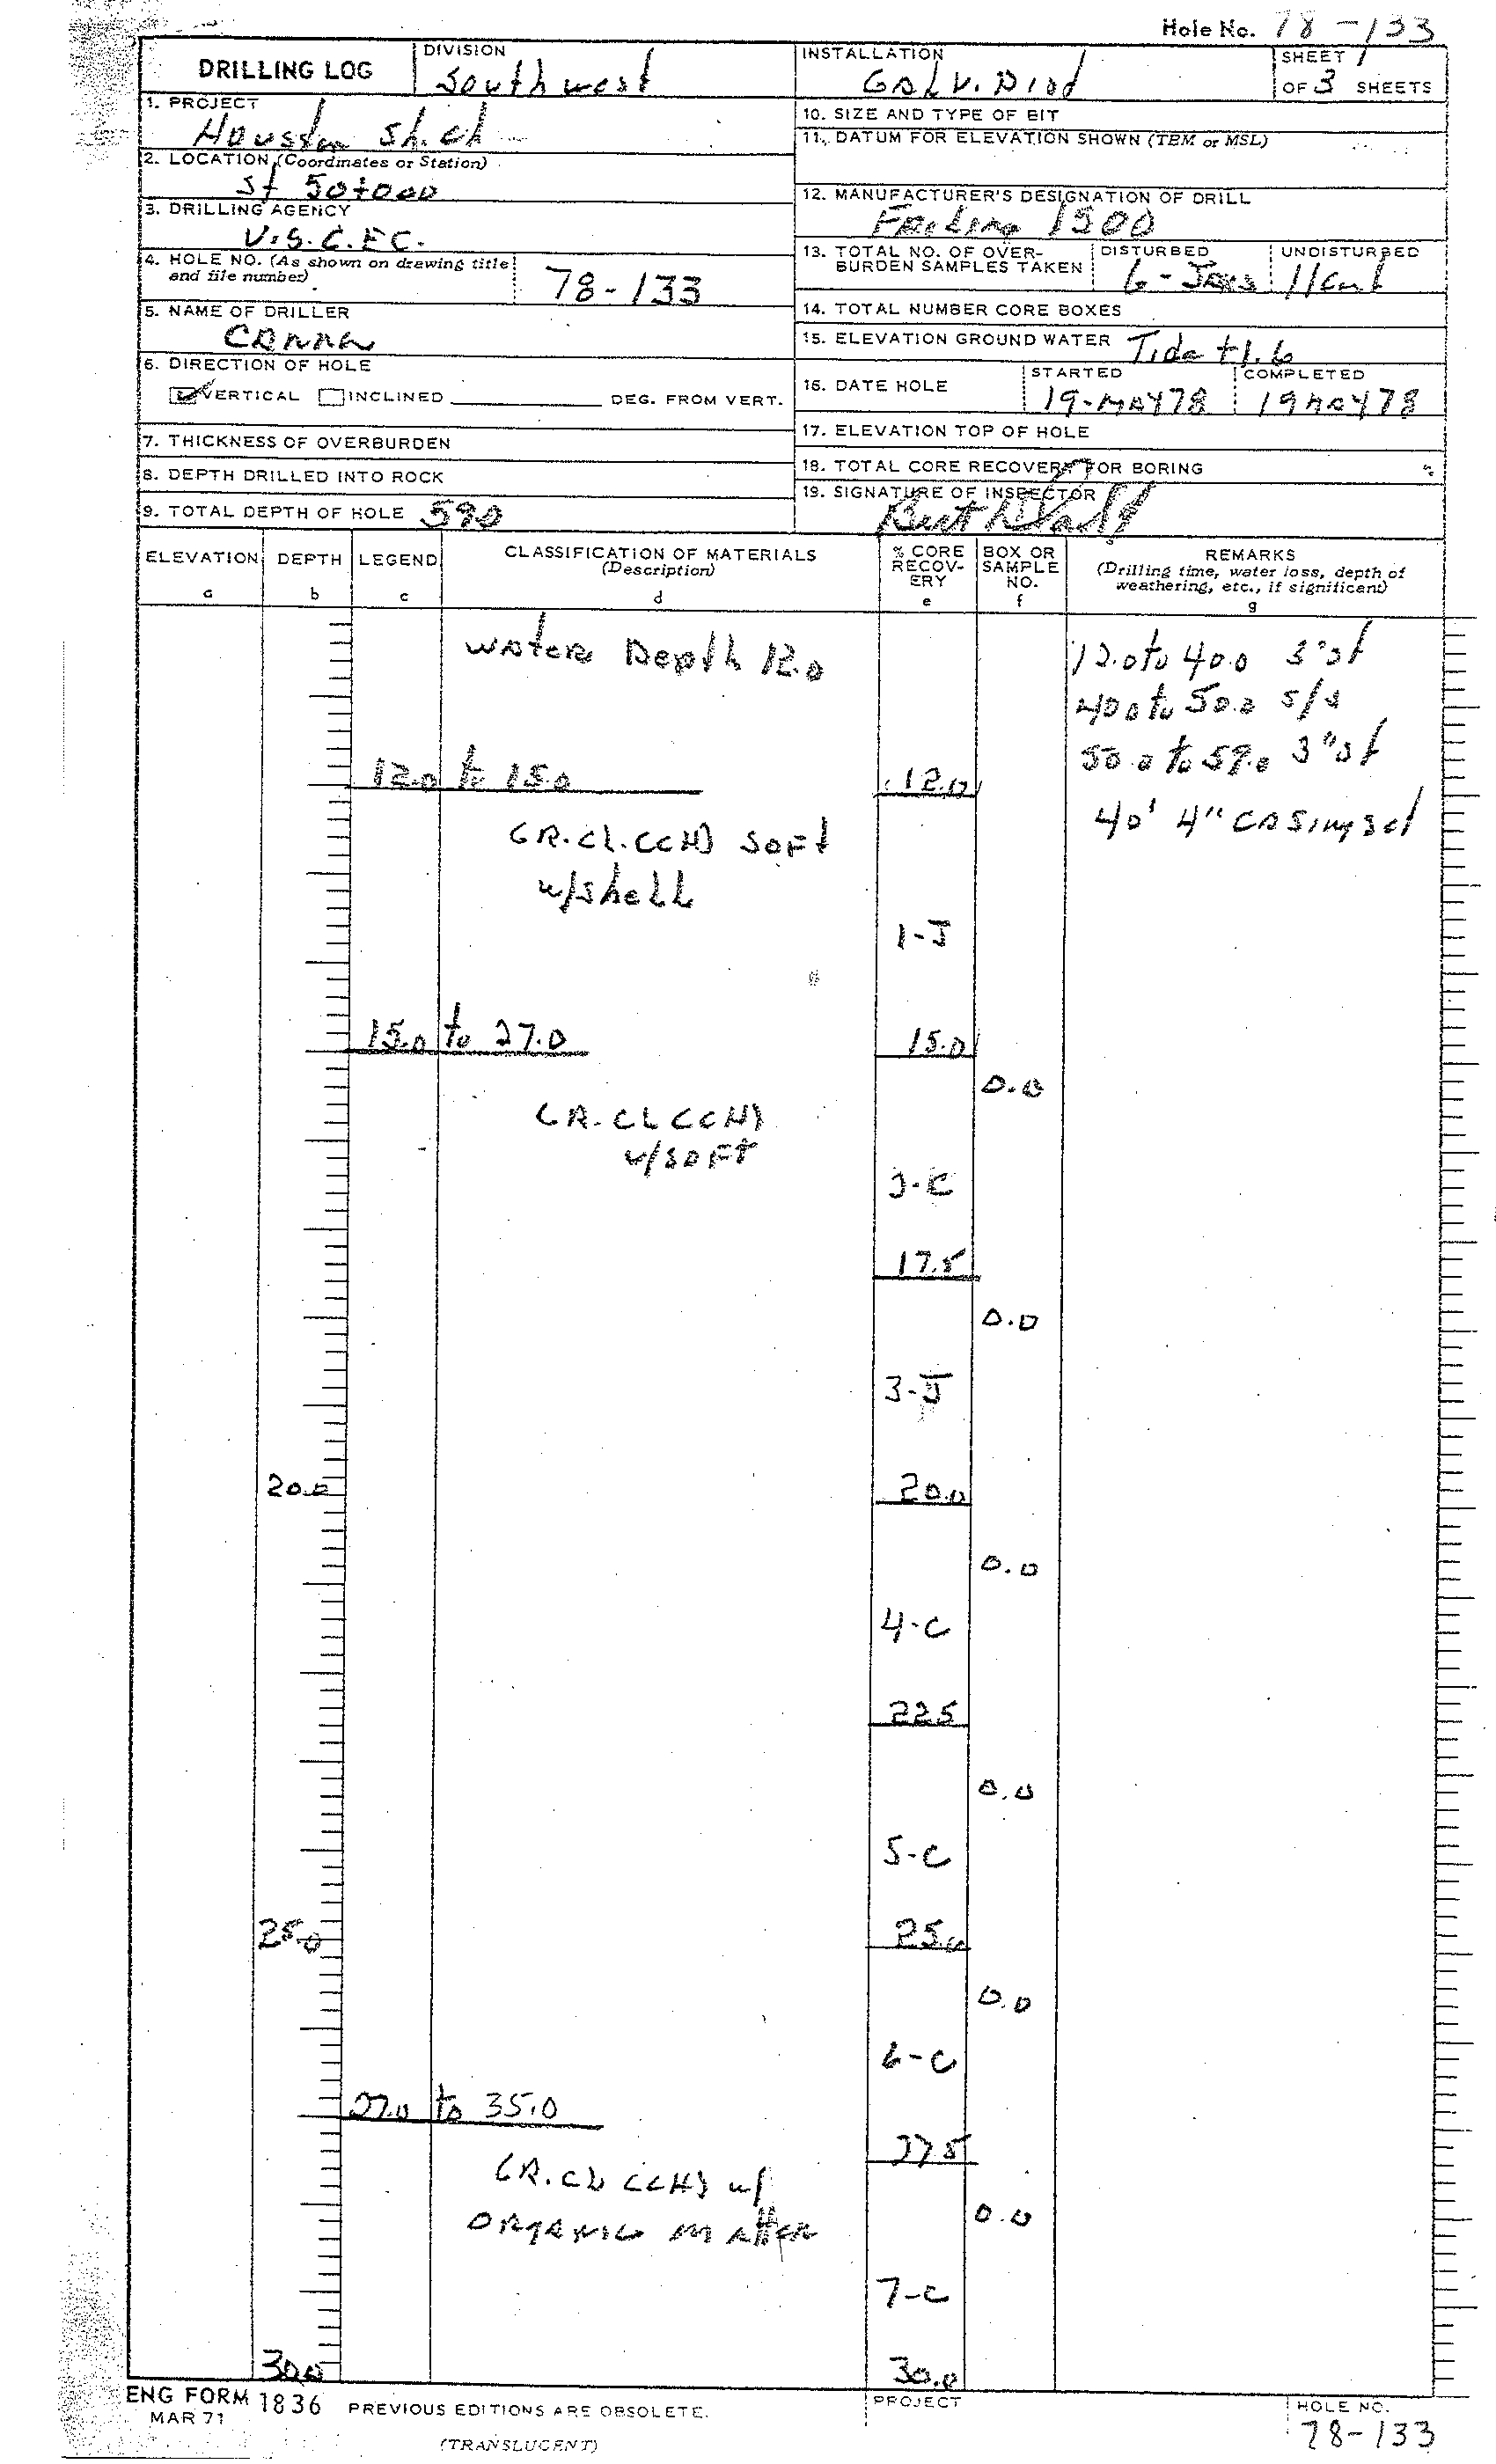 Hole No. 78-133
DRILLING LOG
DIVISION
Southwest
INSTALLATION
GALV. Dist
SHEET 1
OF 3 SHEETS
1. PROJECT
Houston Sh. Ch
2. LOCATION (Coordinates or Station)
St 50+000
3. DRILLING AGENCY
U.S.C.EC.
4. HOLE NO. (As shown on drawing title
and file number)
78-133
5. NAME OF DRILLER
CANNA
6. DIRECTION OF HOLE
VERTICAL INCLINED DEG. FROM VERT.
7. THICKNESS OF OVERBURDEN
8. DEPTH DRILLED INTO ROCK
9. TOTAL DEPTH OF HOLE 590
10. SIZE AND TYPE OF BIT
11. DATUM FOR ELEVATION SHOWN (TBM or MSL)
12. MANUFACTURER'S DESIGNATION OF DRILL
Failing 1500
13. TOTAL NO. OF OVER-
BURDEN SAMPLES TAKEN
DISTURBED
6-Jars
UNDISTURBED
11
14. TOTAL NUMBER CORE BOXES
15. ELEVATION GROUND WATER Tide +1.6
16. DATE HOLE
STARTED
19-MAY78
COMPLETED
19MAY78
17. ELEVATION TOP OF HOLE
18. TOTAL CORE RECOVERY FOR BORING %
19. SIGNATURE OF INSPECTOR
ELEVATION
a
DEPTH
b
LEGEND
c
CLASSIFICATION OF MATERIALS
(Description)
d
% CORE
RECOV-
ERY
e
BOX OR
SAMPLE
NO.
f
REMARKS
(Drilling time, water loss, depth of
weathering, etc., if significant)
g
Water Depth 12.0
12.0 to 40.0 3"st
40.0 to 50.0 s/s
50.0 to 59.0 3"st
40' 4" CASing set
12.0 to 15.0
12.0
GR.CL.(CH) SOFt
w/shell
1-J
15.0 to 27.0
15.0
0.0
GR.CL(CH)
w/SOFt
2-C
17.5
0.0
3-J
20.0
20.0
0.0
4-C
22.5
0.0
5-C
25.0
25.0
0.0
6-C
27.0 to 35.0
27.5
GR.CL(CH) w/
ORGANIC MAtteR
0.0
7-C
30.0
30.0
ENG FORM 1836
MAR 71
PREVIOUS EDITIONS ARE OBSOLETE.
(TRANSLUCENT)
PROJECT
HOLE NO.
78-133